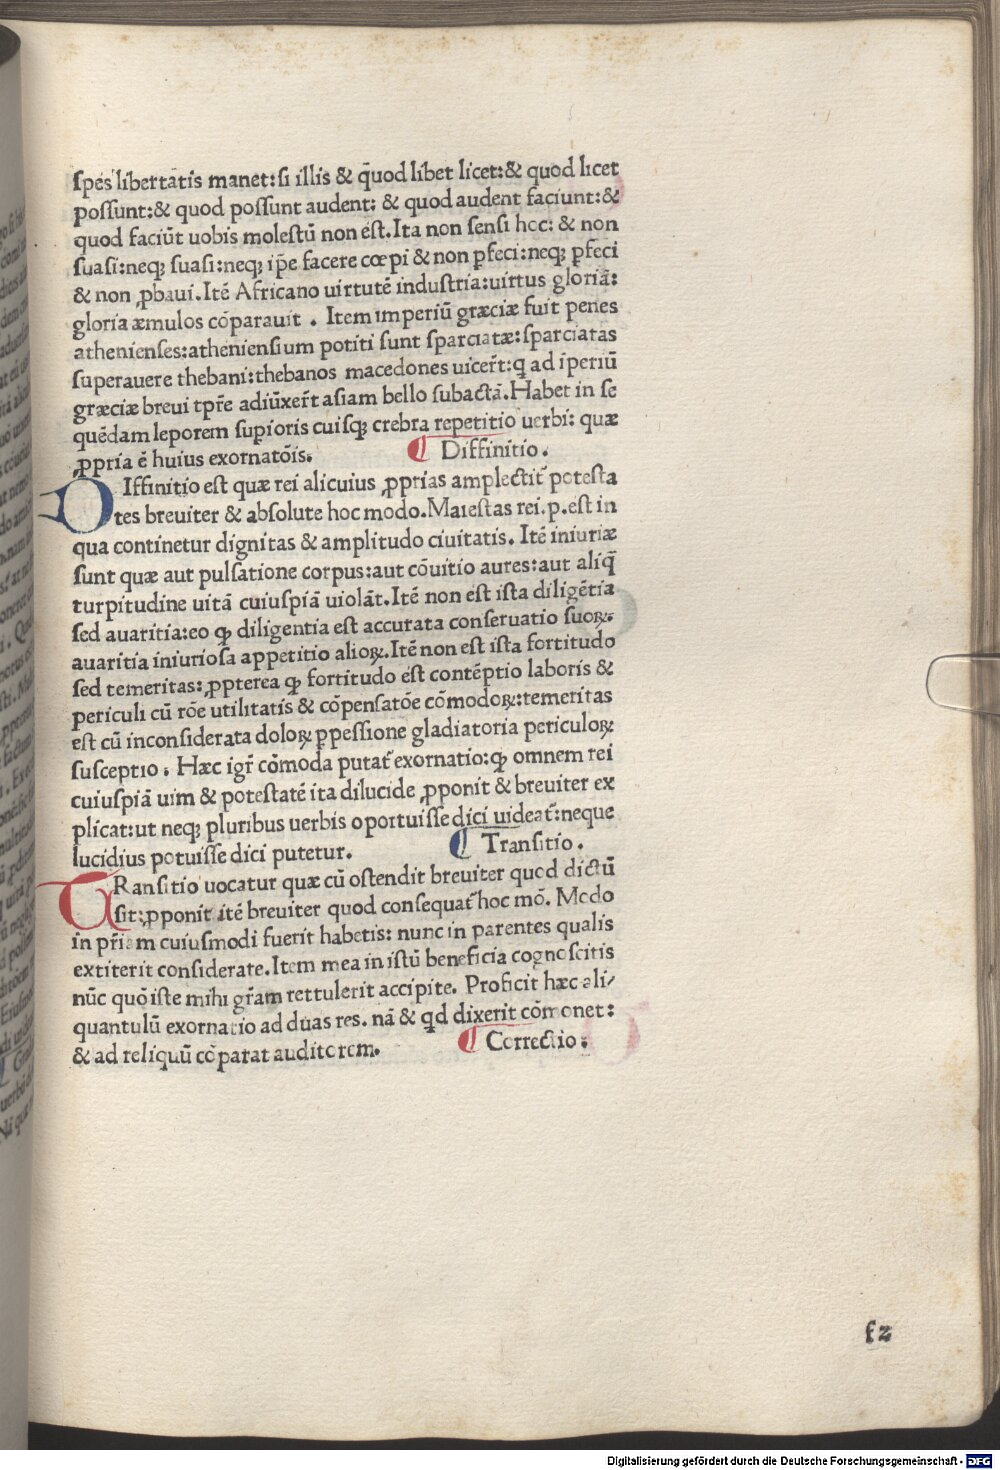 spes libertātis manet:si illis & q̄uod libet licet:& quod licet
possunt:& quod possunt audent: & quod audent faciunt:&
quod faciūt uobis molestū non est.Ita non sensi hoc: & non
suasi:neqꝫ suasi:neqꝫ ip̄e facere cœpi & non ꝑfeci:neqꝫ ꝑfeci
& non ꝓbaui.Itē Africano uirtutē industria:uirtus gloriā:
gloria æmulos cōparauit . Item imperiū græciæ fuit penes
athenienses:atheniensium potiti sunt sparciatæ:sparciatas
superauere thebani:thebanos macedones uicer̄t:q̄ ad īperiū
græciæ breui tpr̄e adiūxer̄t asiam bello subactā.Habet in se
quēdam leporem suꝑioris cuisqꝫ crebra repetitio uerbi: quæ
ꝓpria ē huius exornatōis. ¶ Diffinitio.
DIffinitio est quæ rei alicuius ꝓprias amplectit᷑ potesta
tes breuiter & absolute hoc modo.Maiestas rei.p.est in
qua continetur dignitas & amplitudo ciuitatis. Itē iniuriæ
sunt quæ aut pulsatione corpus:aut cōuitio aures:aut aliq̄
turpitudine uitā cuiuspiā uiolāt.Itē non est ista diligētia
sed auaritia:eo ꝙ diligentia est accurata conseruatio suoꝝ.
auaritia iniuriosa appetitio alioꝝ.Itē non est ista fortitudo
sed temeritas:ꝓpterea ꝙ fortitudo est contēptio laboris &
periculi cū rōe utilitatis & cōpensatōe cōmodoꝝ:temeritas
est cū inconsiderata doloꝝ ꝑpessione gladiatoria periculoꝝ
susceptio. Hæc igr̄ cōmoda putat᷑ exornatio:ꝙ omnem rei
cuiuspiā uim & potestatē ita dilucide ꝓponit & breuiter ex
plicat:ut neqꝫ pluribus uerbis oportuisse dici uideat᷑:neque
lucidius potuisse dici putetur. ¶ Transitio.
TRansitio uocatur quæ cū ostendit breuiter quod dictū
sit:ꝓponit itē breuiter quod consequat᷑ hoc mō. Modo
in pr̄iam cuiusmodi fuerit habetis: nunc in parentes qualis
extiterit considerate.Item mea in istū beneficia cognoscitis
nūc quō iste mihi gr̄am rettulerit accipite. Proficit hæc ali/
quantulū exornatio ad duas res. nā & qd̄ dixerit cōmonet:
& ad reliquū cōparat auditorem. ¶ Correctio:
f2
Digitalisierung gefördert durch die Deutsche Forschungsgemeinschaft - DFG